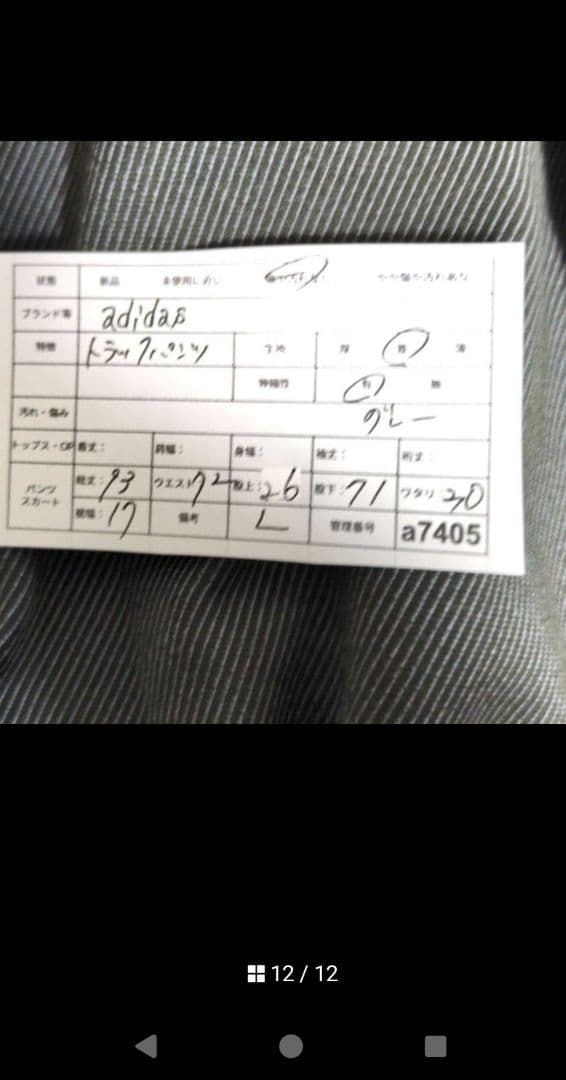 状態 新品 未使用に近い やや傷や汚れあり
ブランド等 adidas
特徴 トラックパンツ 生地 厚 普 薄
伸縮性 有 無
汚れ・傷み グレー
トップス・OP 着丈: 肩幅: 身幅: 袖丈: 裄丈:
パンツ スカート 総丈:93 ウエスト72 股上:26 股下:71 ワタリ:30
裾幅:17 備考 L 管理番号 a7405
12 / 12